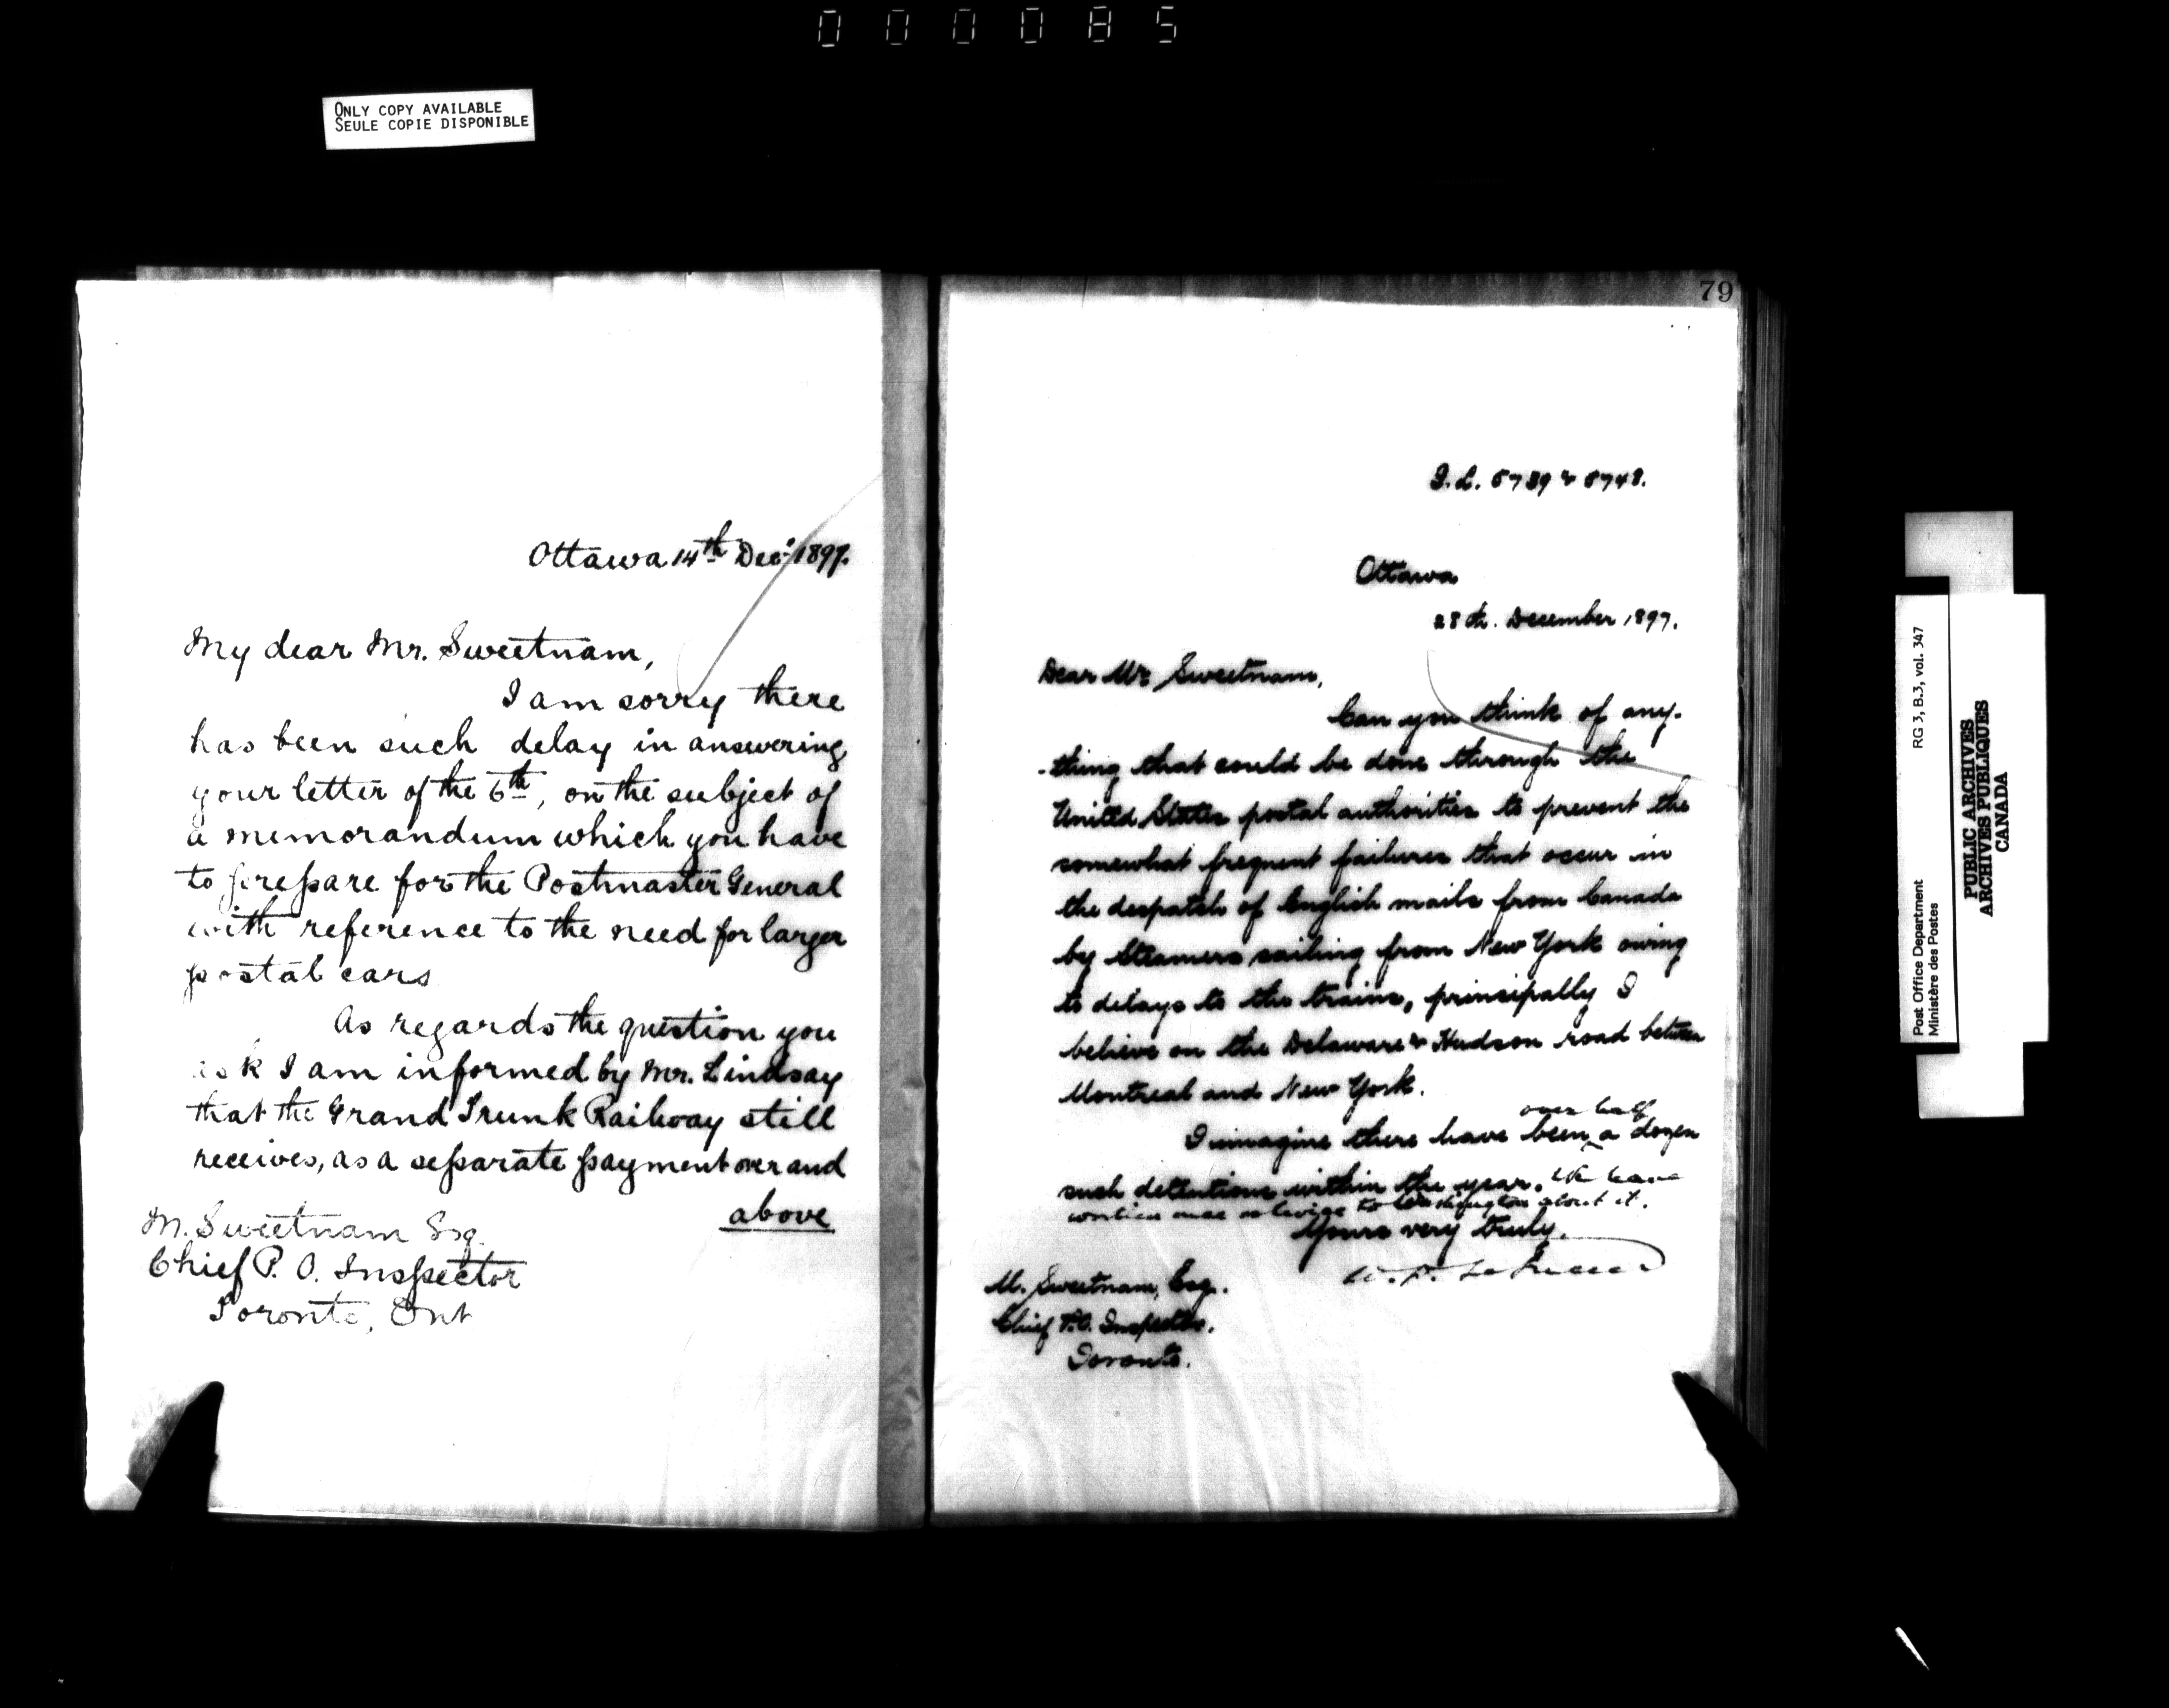 000085
ONLY COPY AVAILABLE
SEULE COPIE DISPONIBLE
Ottawa 14th Dec. 1897.
My dear Mr. Sweetnam,
I am sorry there
has been such delay in answering
your letter of the 6th, on the subject of
a memorandum which you have
to prepare for the Postmaster General
with reference to the need for larger
postal cars
As regards the question you
ask I am informed by Mr. Lindsay
that the Grand Trunk Railway still
receives, as a separate payment over and
above
M. Sweetnam Esq.
Chief P. O. Inspector
Toronto, Ont
79
I.L. 5739 & 5748.
Ottawa
28th. December 1897.
Dear Mr. Sweetnam,
Can you think of any-
-thing that could be done through the
United States postal authorities to prevent the
somewhat frequent failures that occur in
the despatch of English mails from Canada
by Steamers sailing from New York owing
to delays to the trains, principally I
believe on the Delaware & Hudson road between
Montreal and New York.
over half
I imagine there have been a dozen
such detentions within the year. We have
written once or twice to Washington about it.
Yours very truly.
M. Sweetnam, Esq.
Chief P.O. Inspector.
Toronto.
Post Office Department RG 3, B.3, vol. 347
Ministère des Postes
PUBLIC ARCHIVES
ARCHIVES PUBLIQUES
CANADA